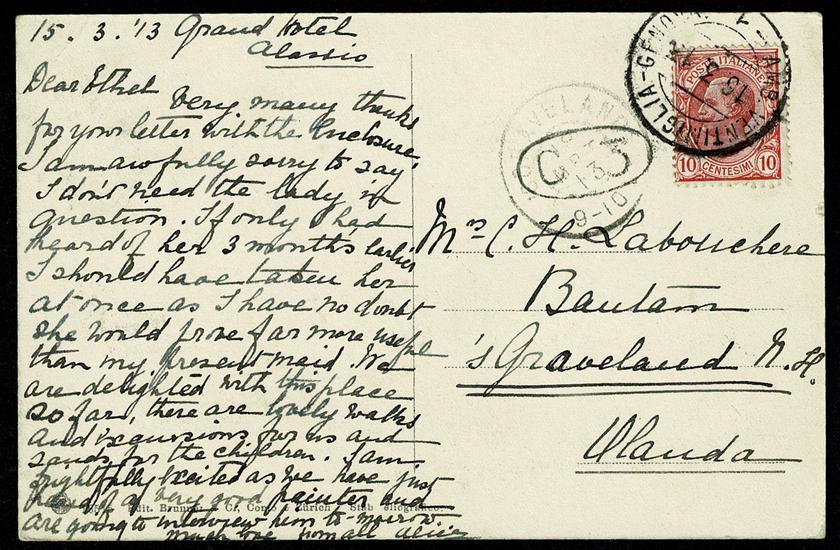 15. 3. '13 Grand Hotel
Alassio
Dear Ethel
Very many thanks
for your letter with the Enclosure.
I am awfully sorry to say
I don't need the lady in
question. If only I had
heard of her 3 months earlier
I should have taken her
at once as I have no doubt
she would prove far more useful
than my present maid. We
are delighted with this place
so far, there are lovely walks
and Excursions for us and
sands for the children. I am
frightfully Excited as we have just
heard of a very good painter and
are going to interview him to-morrow.
much love from all Alice
Edit. Brunner & C., Como e Zürich Stab eliografico
POSTE ITALIANE
10 CENTESIMI 10
AMB. VENTIMIGLIA-GENOVA
'S GRAVELAND
13
9-10
Mrs C. H. Labouchere
Bantam
's Graveland N. H.
Olanda